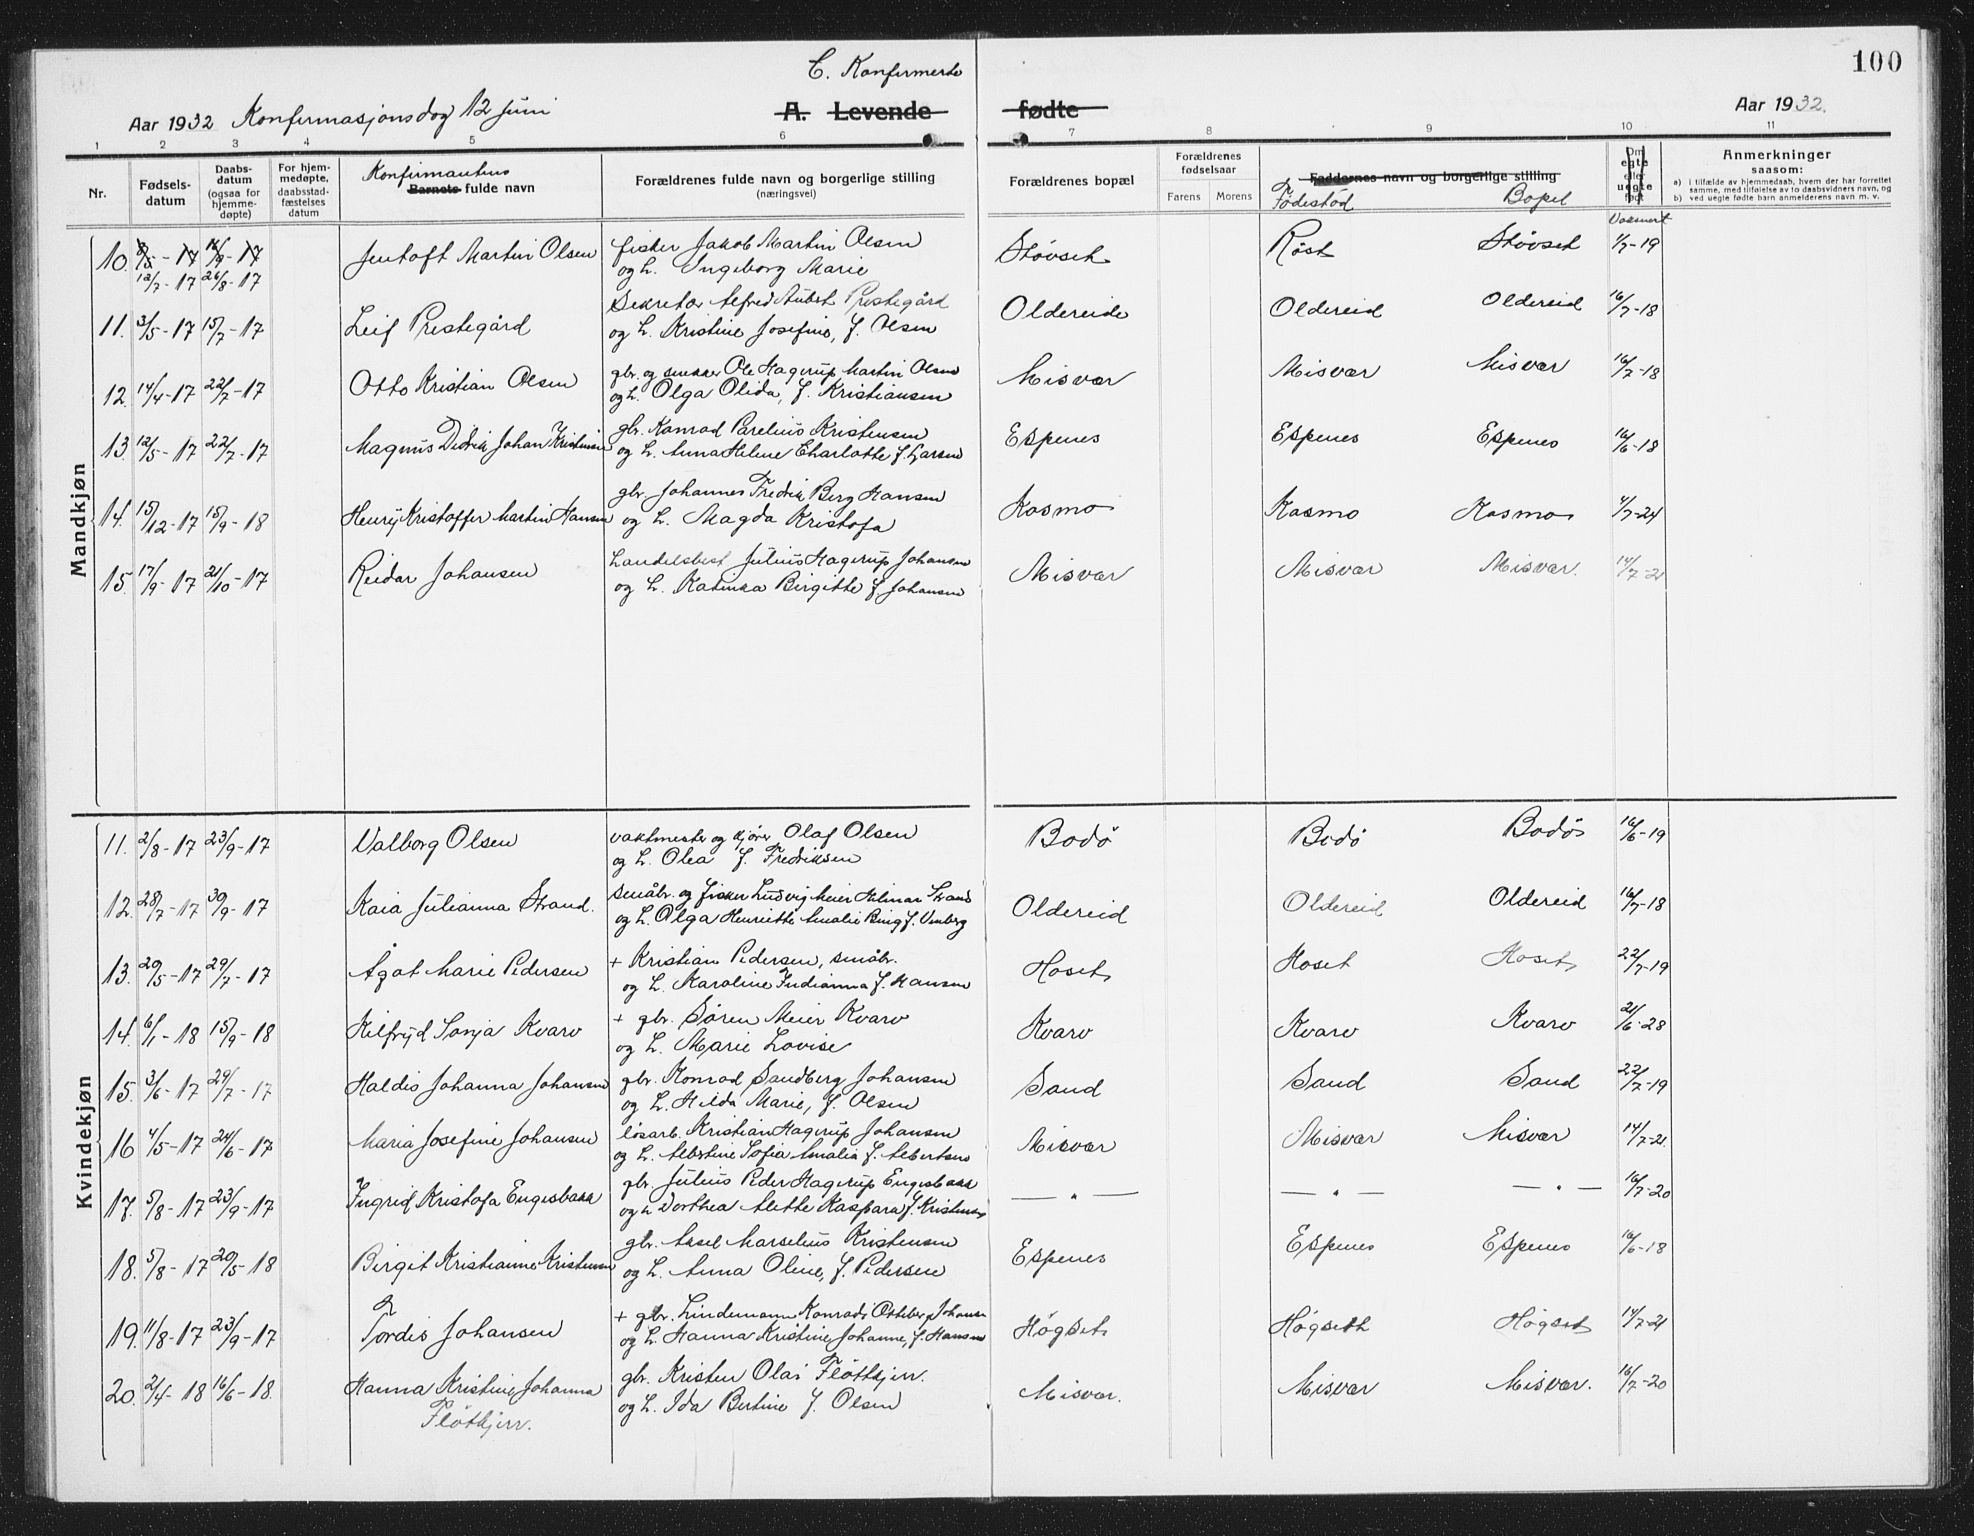 100
C. Konfirmerte
Aar 1932 Konfirmasjonsdag 12 Juni A. Levende fødte Aar 1932.
1 2 3 4 5 6 7 8 9 10 11
Nr. Fødsels-datum Daabs-datum (ogsaa for hjemme-døpte) For hjem-medøpte, daabsstad-fæstelses datum Konfirmantens Barnets fulde navn Forældrenes fulde navn og borgerlige stilling (næringsvei) Forældrenes bopæl Forældrenes fødselsaar Farens Morens Faddernes navn og borgerlige stilling Fødested Bopel Om egte eller uegte født Vaksinert Anmerkninger saasom: a) i tilfælde av hjemmedaab, hvem der har forrettet samme, med tilføielse av to daabsvidners navn, og b) ved uegte fødte barn anmelderens navn m. v.
Mandkjøn
10. Jentoft Martin Olsen fisker Jakob Martin Olsen Støvset Røst Støvset 1/7-19
12/7-17 26/8-17 og h. Ingeborg Marie
Sekretær Alfred Aubert Prestegård
11. 3/5-17 15/7-17 Leif Prestegård og h. Kristine Josefine, f. Olsen Oldereide Oldereid Oldereid 16/7-18
gbr. og snekker Ole Hagerup Martin Olsen
12. 14/4-17 22/7-17 Otto Kristian Olsen og h. Olga Olida, f. Kristiansen Misvær Misvær Misvær 16/7-18
gbr. Konrad Parelius Kristensen
13. 12/5-17 22/7-17 Magnus Didrik Johan Kristensen og h. Anna Helene Charlotte f. Larsen Espenes Espenes Espenes 16/6-18
gbr. Johannes Fredrik Berg Hansen
14. 15/12-17 15/9-18 Henry Kristoffer Martin Hansen og h. Magda Kristofa Kosmo Kosmo Kosmo 4/7-24
handelsbest. Julius Hagerup Johansen
15. 17/9-17 21/10-17 Reidar Johansen og h. Katinka Birgitte f. Johansen Misvær Misvær Misvær. 14/7-21
Kvindekjøn
11. 2/8-17 23/9-17 Valborg Olsen vaktmester og kjører Olaf Olsen Bodø Bodø Bodø 16/6-19
og h. Olea f. Fredriksen
12. 28/7-17 30/9-17 Kaia Julianna Strand. småbr. og fisker Ludvig Meier Hilmar Strand Oldereid Oldereid Oldereid 16/7-18
og h. Olga Henriette Amalie Ring f.
13. 20/5-17 29/7-17 Ågot Marie Pedersen + Kristian Pedersen, småbr. Hoset Hoset Hoset 22/7-19
og h. Karoline Indianna f. Hansen
14. 6/1-18 15/9-18 Hilfryd Sonja Kvarv + gbr. Søren Meier Kvarv Kvarv Kvarv Kvarv 21/6-28
og h. Marie Lovise
15. 3/6-17 29/7-17 Haldis Johanna Johansen gbr. Konrad Sandberg Johansen Sand Sand Sand 22/7-19
og h. Hilda Marie, f. Olsen
16 4/5-17 24/6-17 Maria Josefine Johansen løsarb. Kristian Hagerup Johansen Misvær Misvær Misvær 14/7-21
og h. Albertine Sofia Amalia f. Albertsen
17. 5/8-17 23/9-17 Ingrid Kristofa Engesbakk gbr. Julius Peder Hagerup Engesbakk — " — — " — — " — 16/7-20
og h Dorthea Alette Kaspara f. Kristensen
18. 5/8-17 20/5-18 Birgit Kristianne Kristensen gbr. Aksel Marselius Kristensen Espenes Espenes Espenes 16/6-18
og h. Anna Oline, f. Pedersen
19. 11/8-17 23/9-17 Tordis Johansen + gbr. Lindemann Konradi Johansen Høgset Høgseth Høgset 14/7-21
og h. Hanna Kristine Johanne, f. Hansen
20. 2/4-18 16/6-18. Hanna Kristine Johanna Fløtkjerr. gbr. Kristen Olai Fløtkjerr. Misvær. Misvær Misvær. 16/7-20
og h. Ida Bertine f. Olsen